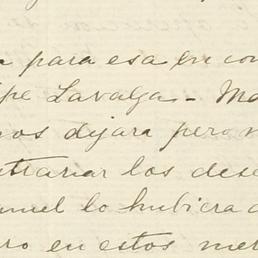 para esa en con
pe Lavalga - Ma
nos dijara pero n
ntrariar los dese
nuel lo hubiera d
ro en estos me